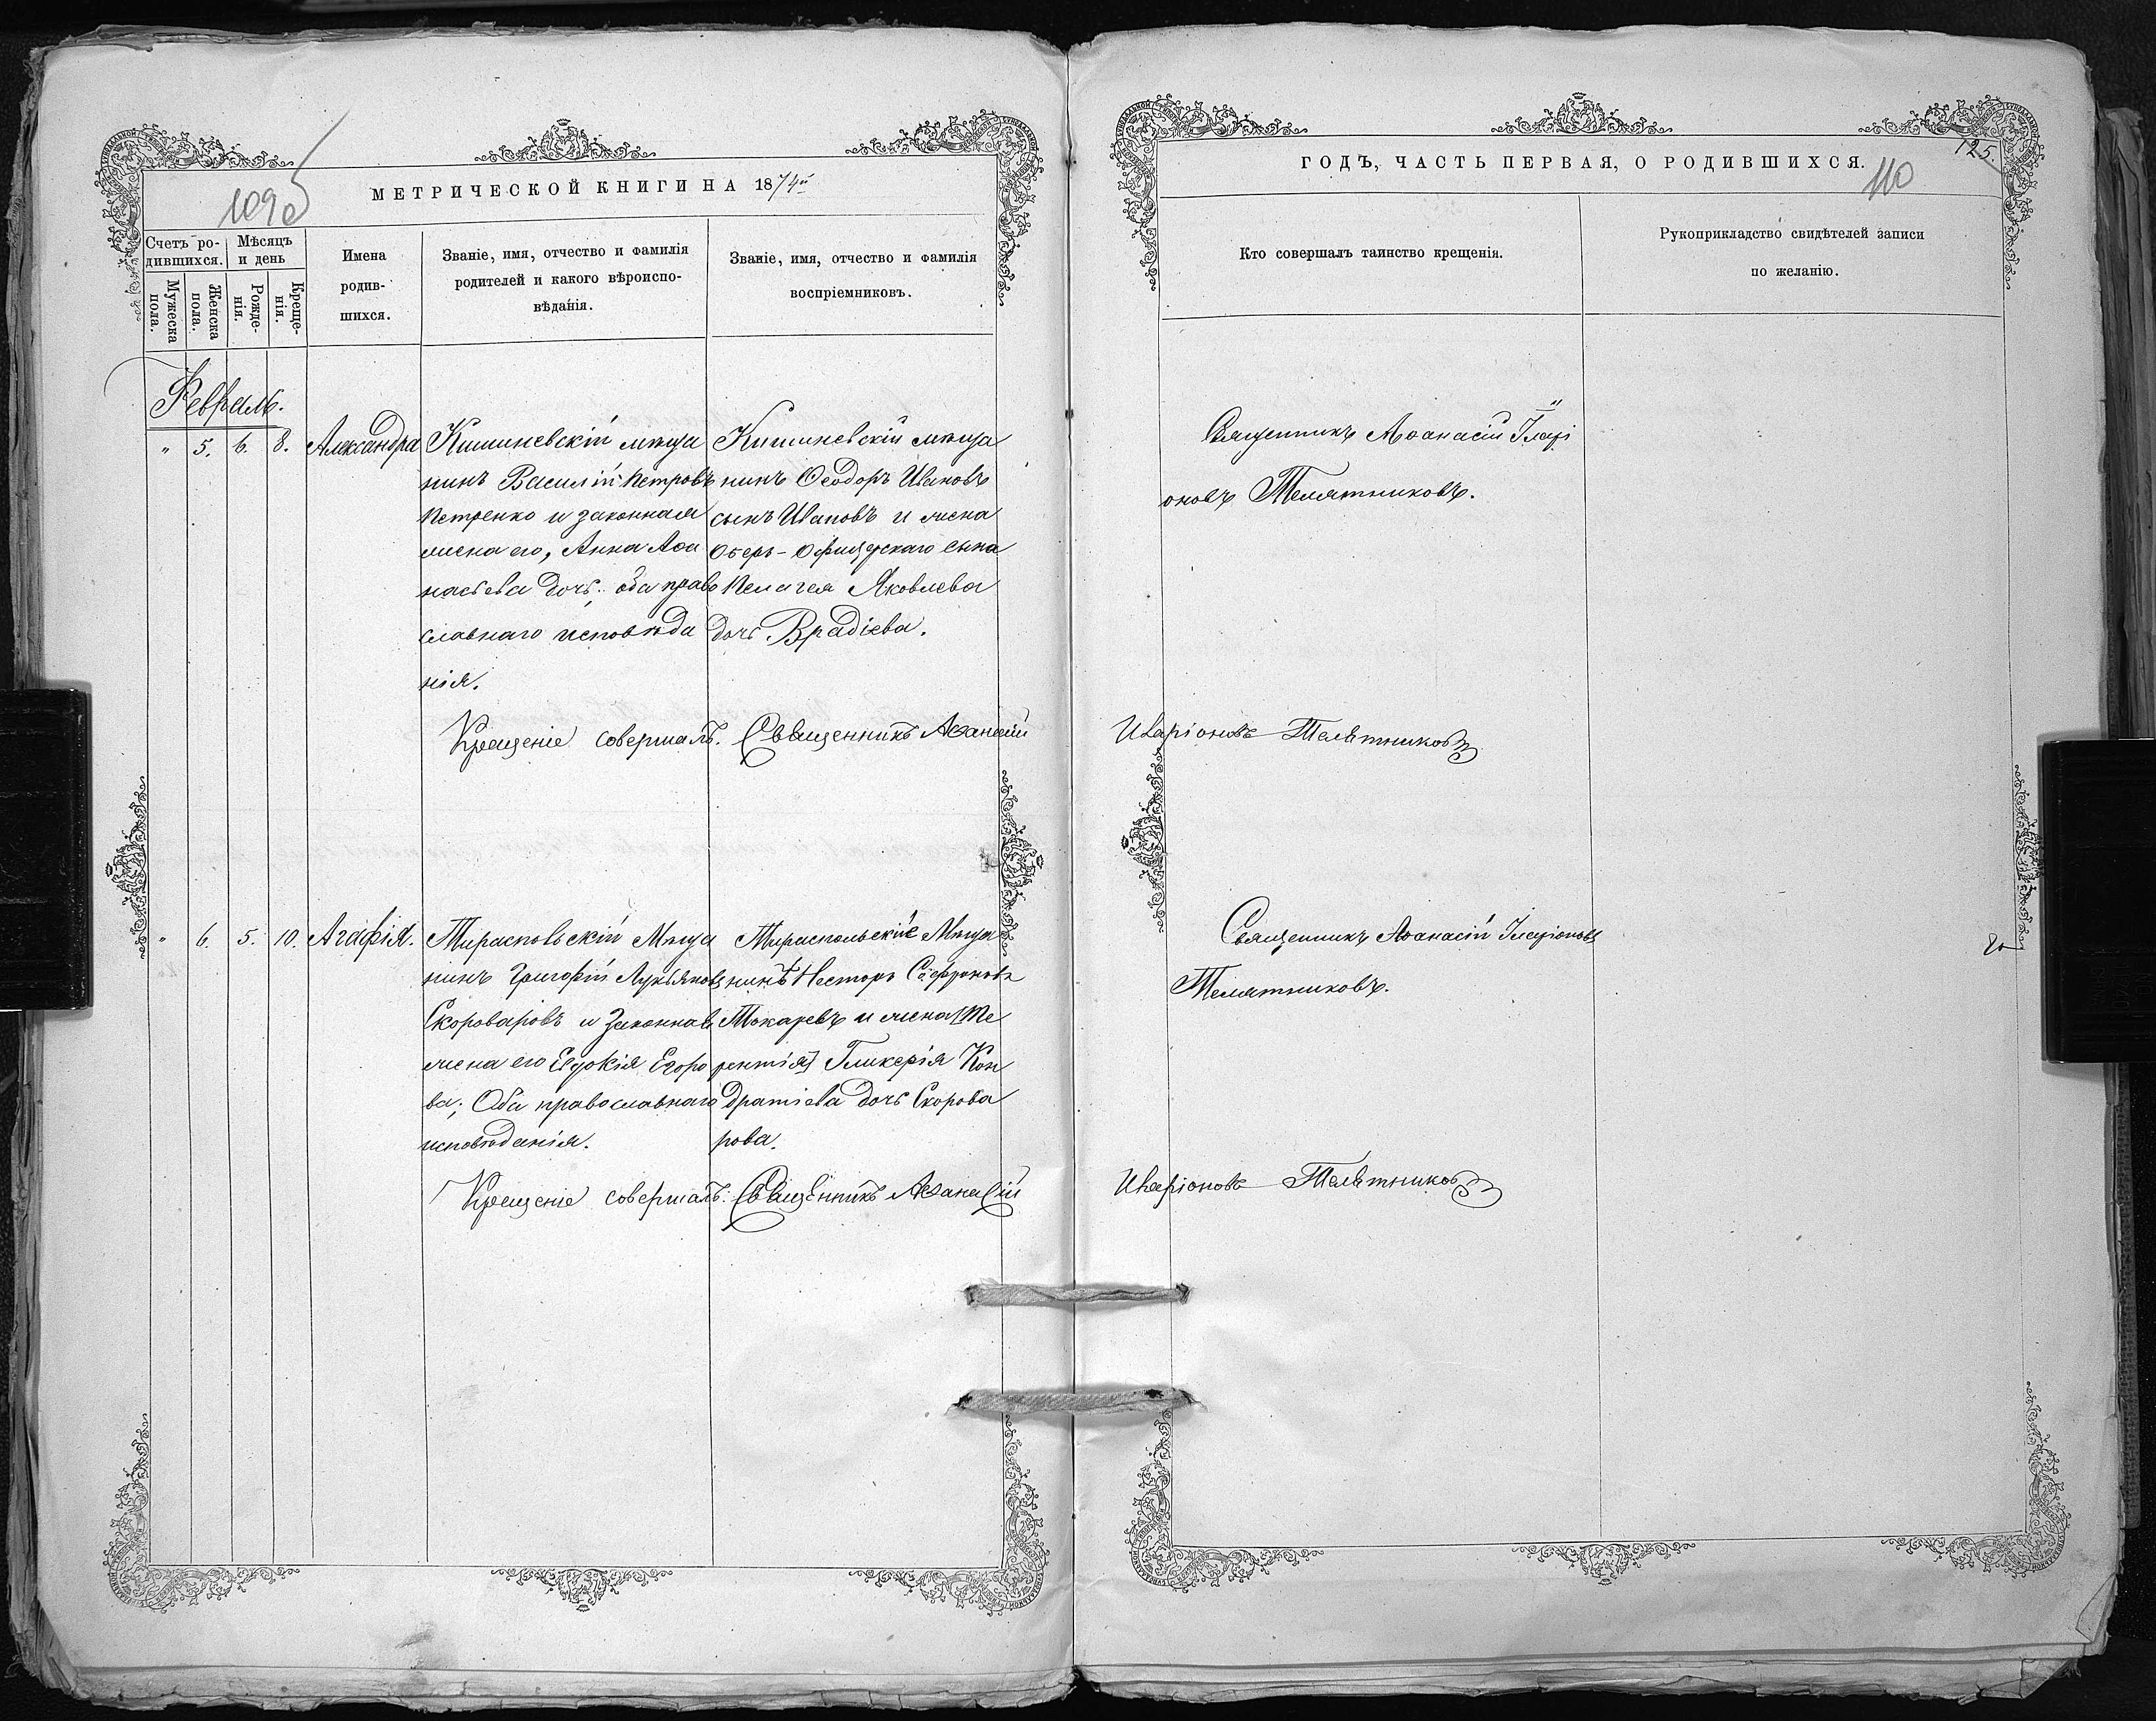 109 об
МЕТРИЧЕСКОЙ КНИГИ НА 1874й
Счетъ ро-
дившихся.
Мѣсяцъ
и день
Мужеска
пола.
Женска
пола.
Рожде-
нія.
Креще-
нія.
Имена
родив-
шихся.
Званіе, имя, отчество и фамилія
родителей и какого вѣроиспо-
вѣданія.
Званіе, имя, отчество и фамилія
воспріемниковъ.
Февраль.
" 5. 6. 8. Александра
Кишиневскій мѣща
нинъ Василій Петровъ
Петренко и законная
жена его, Анна Аѳа
насьева дочь; оба право
славнаго исповѣда
нія.
Кишиневскій мѣща
нинъ Ѳеодоръ Ивановъ
сынъ Ивановъ и жена
Оберъ-Офицерскаго сына
Пелагея Яковлева
дочь Врадіева.
Крещеніе совершалъ. Священникъ Аѳанасій
" 6. 5. 10. Агафія.
Тираспольскій Мѣща
нинъ Григорій Лукьяновъ
Скороваровъ и Законная
жена его Евдокія Егоро
ва; Оба православнаго
исповѣданія.
Тираспольскіе Мѣща
нинъ Несторъ Сафроновъ
Токаревъ и жена [Те
рентія] Гликерія Кон
дратіева дочь Скорова
рова.
Крещеніе совершалъ. Священникъ Аѳанасій
ГОДЪ, ЧАСТЬ ПЕРВАЯ, О РОДИВШИХСЯ.
125.
110
Кто совершалъ таинство крещенія.
Рукоприкладство свидѣтелей записи
по желанію.
Священникъ Аѳанасій Иларі
оновъ Телятниковъ.
Иларіоновъ Телятниковъ
Священникъ Аѳанасій Иларіоновъ
Телятниковъ.
Иларіоновъ Телятниковъ